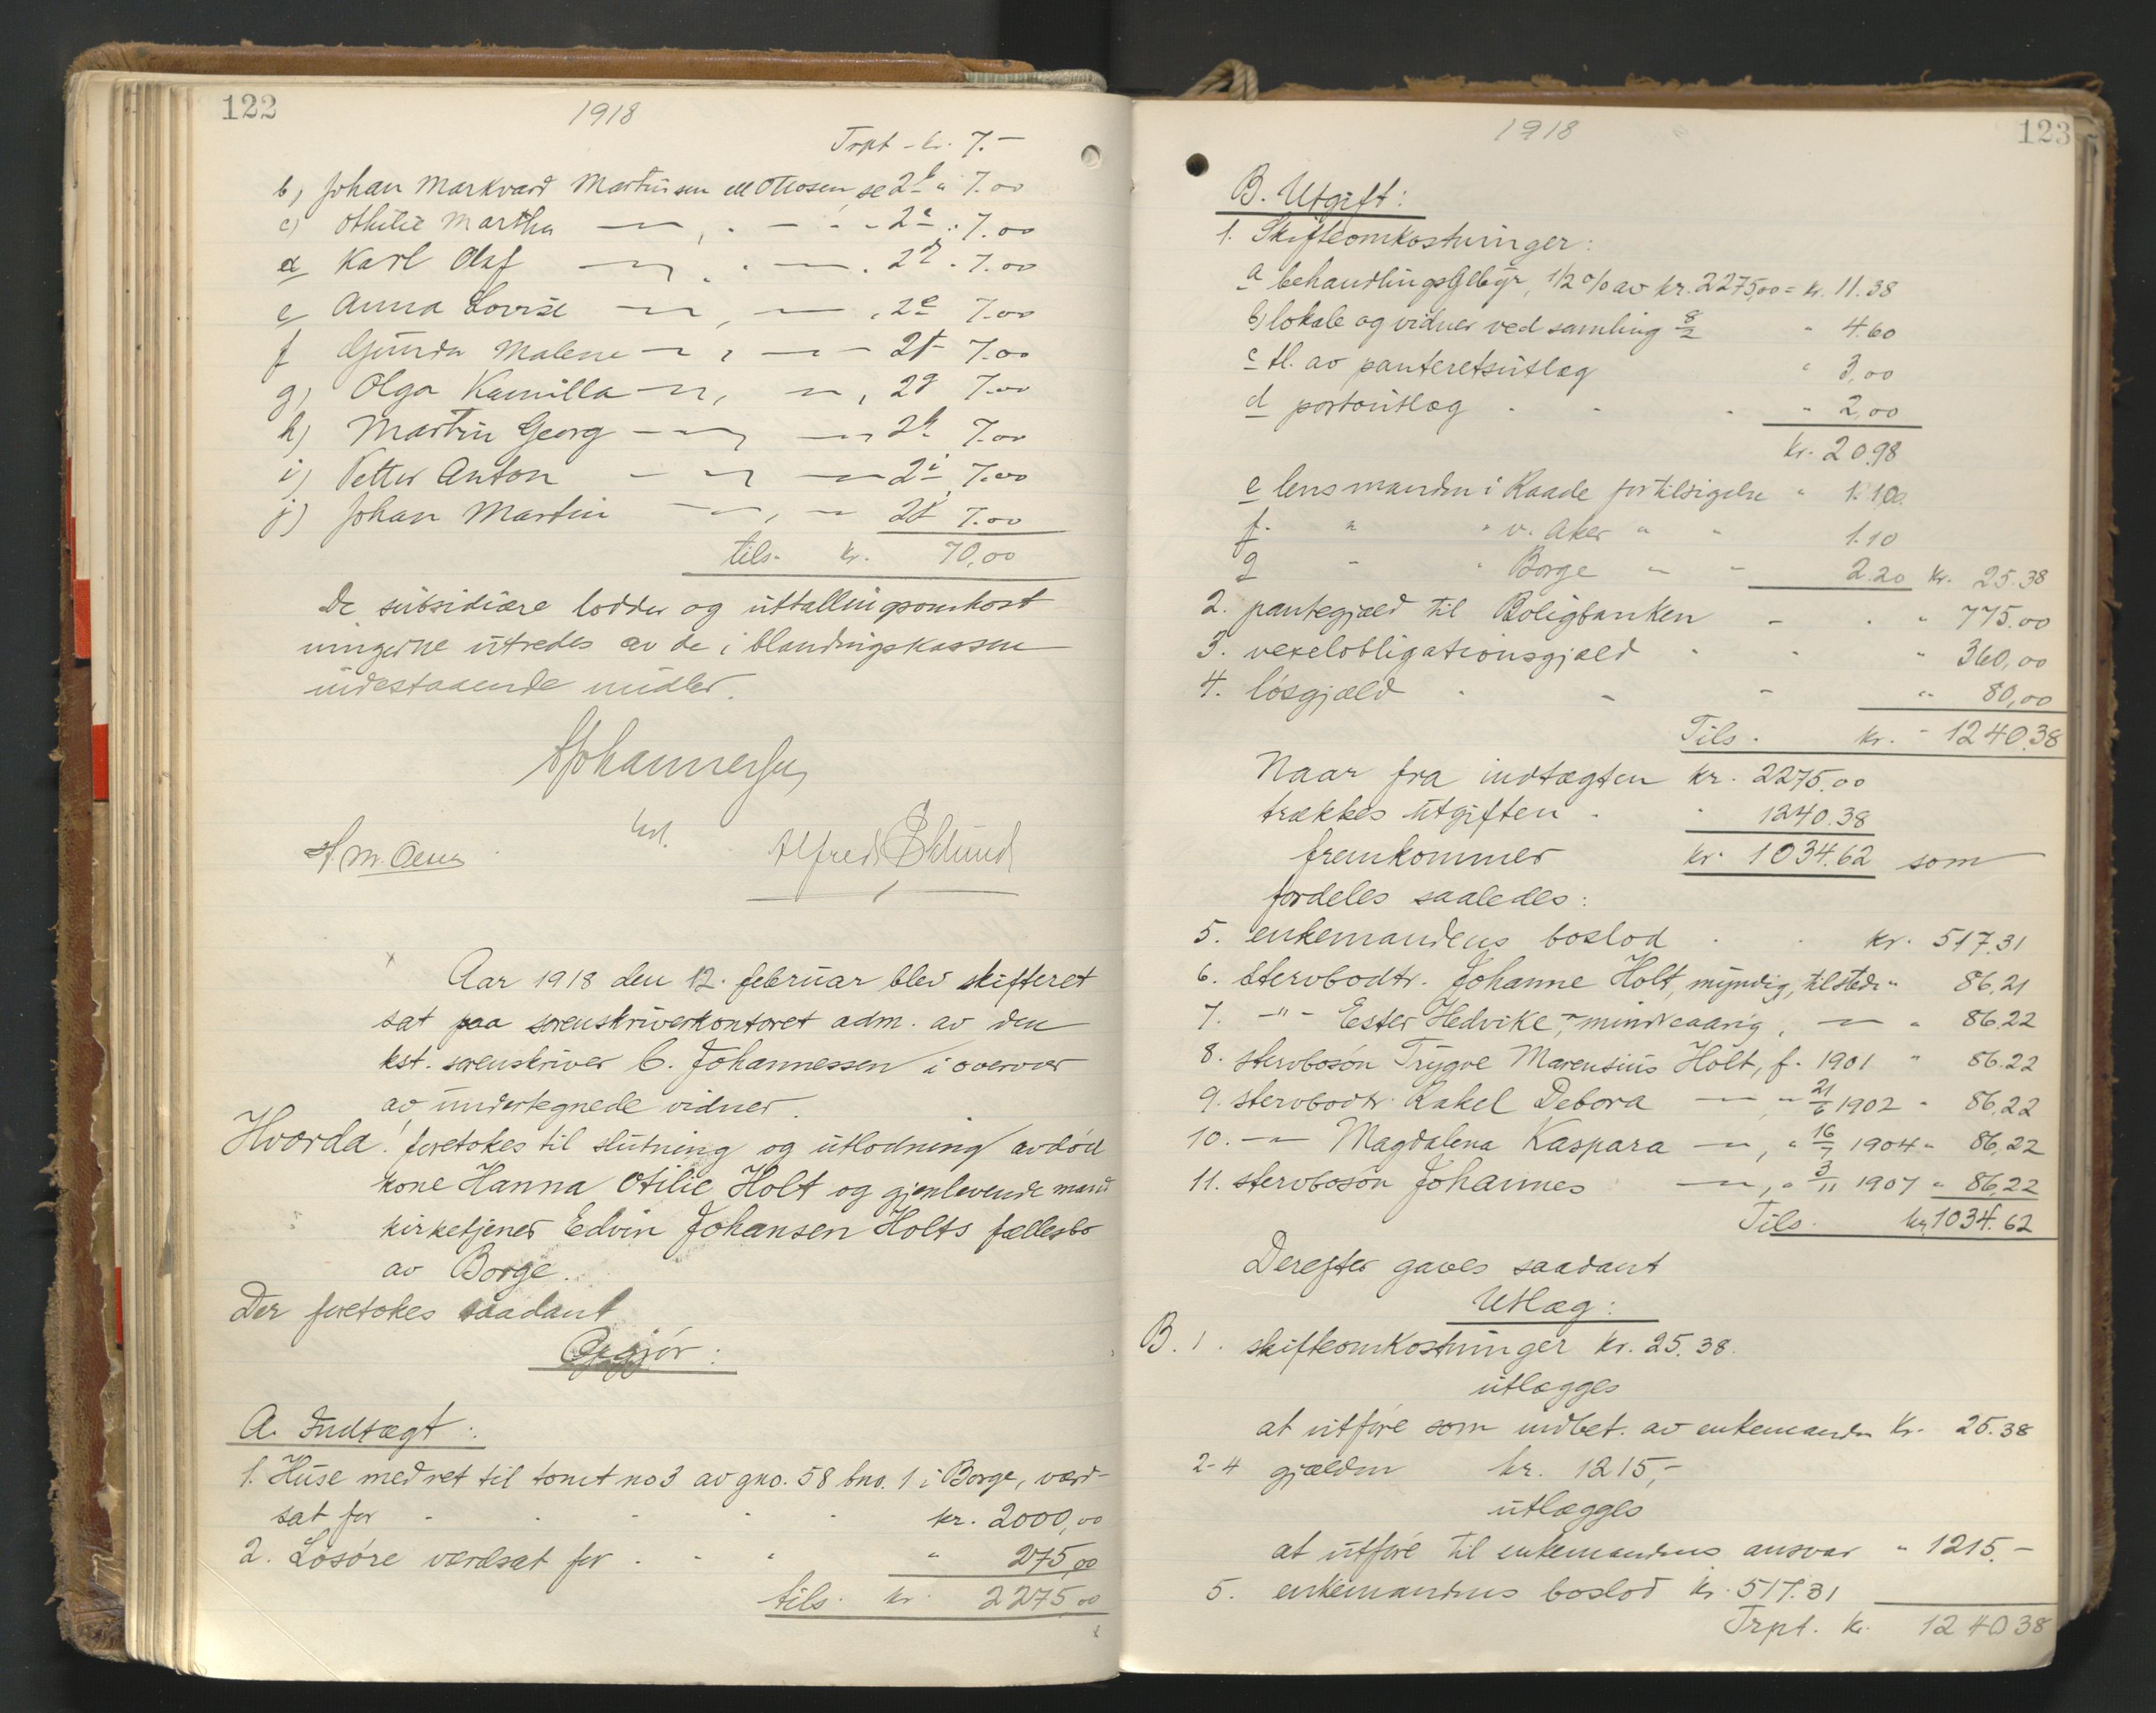 122
1918
Trpt - kr. 7.-
b, Johan Markvard Martinsen ell Olsen, se 2b " 7.00
c) Othilie Martha — " — , . — . - - 2c " 7.00
d Karl Olaf — " — . — " — . 2d . 7.00
e Anna Lovise — " — , — " — , 2e 7.00
f Gunda Malene — " — , — " — 2f 7.00
g) Olga Kamilla — " — , — " — , 2g 7.00
h) Martin Georg — " — , — " — 2h 7.00
i) Petter Anton — " — , — " — 2i 7.00
j) Johan Martin — " — , — " — 2j 7.00
tils. kr. 70,00
De subsidiære lodder og uttallingsomkost
ningerne utredes av de i blandingskassen
indestaaende midler.
Johannessen
kst.
Alfred Eklund
Aar 1918 den 12. februar blev skifteret
sat paa sorenskriverkontoret adm. av den
kst. sorenskriver C. Johannessen i overvær
av undertegnede vidner.
Hvorda! foretokes til slutning og utlodning avdød
kone Hanna Otilie Holt og gjenlevende mand
kirketjener Edvin Johansen Holts fællesbo
av Borge.
Der foretokes saadant
Opgjør:
A. Indtægt:
1. Huse med ret til tomt no 3 av gno. 58 bno. 1 i Borge, værd-
sat for - - - - kr. 2000,00
2. Løsøre værdsat for - - " " 275,00
tils. kr. 2275,00
1918
123
B. Utgift:
1. Skifteomkostninger:
a behandlingsgebyr, 1/2 % av kr. 2275,00 = kr. 11.38
b) lokale og vidner ved samling 8/2 " 4.60
c tl. av panteretsutlæg " 3,00
d portoutlæg - - - " 2,00
kr. 20.98
e lensmanden i Raade for tilsigelse " 1.10
f. " " v. Aker " " 1.10
g - " Borge " " 2.20 kr. 25.38
2. pantegjæld til Boligbanken - - " 775.00
3. vexelobligationsgjæld - - " 360,00
4. løsgjæld - - - " 80,00
Tils. kr. - 1240.38
Naar fra indtægten kr. 2275.00
trækkes utgiften - " 1240.38
fremkommer kr. 1034.62 som
fordeles saaledes:
5. enkemandens boslod - - kr. 517.31
6. stervbodtr. Johanne Holt, myndig, tilstede " 86.21
7. - " - Ester Hedvike - " - mindreaarig, — " — " 86.22
8. stervbosøn Trygve Marensius Holt, f. 1901 " 86.22
9. stervbodtr. Rakel Debora — " — , " 21/6 1902 " 86,22
10. — " — Magdalena Kaspara — " — , " 16/7 1904 " 86,22
11. stervbosøn Johannes — " — , " 3/11 1907 " 86,22
Tils. kr. 1034.62
Derefter gaves saadant
Utlæg:
B. 1. skifteomkostninger kr. 25.38.
utlægges
at utføre som indbet. av enkemanden kr. 25.38
2-4 gjælden kr. 1215,-
utlægges
at utføre til enkemandens ansvar " 1215.-
5. enkemandens boslod kr. 517.31
Trpt. kr. 1240 38